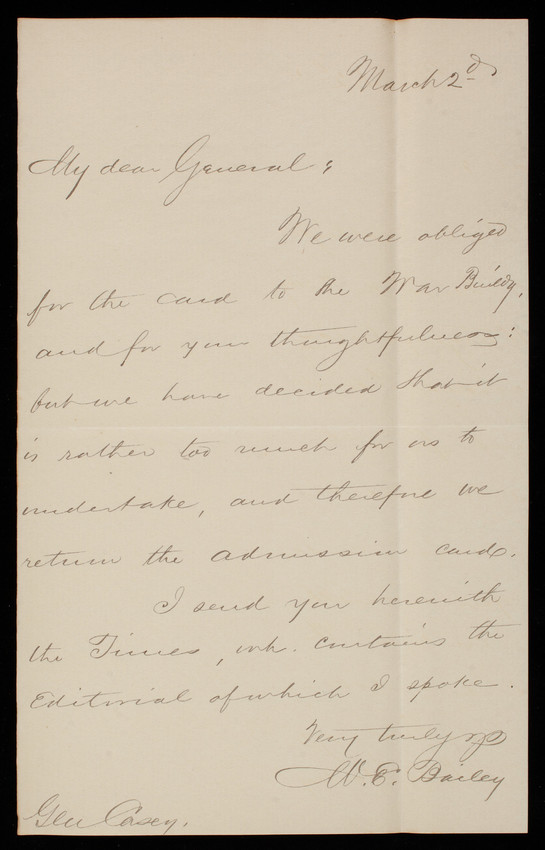 March 2d
My dear General;
We were obliged
for the card to the War Buildg,
and for your thoughtfulness:
but we have decided that it
is rather too much for us to
undertake, and therefore we
return the admission cards.
I send you herewith
the Times, wh. contains the
Editorial of which I spoke.
Very truly yrs
W. E. Bailey
Gen Casey.